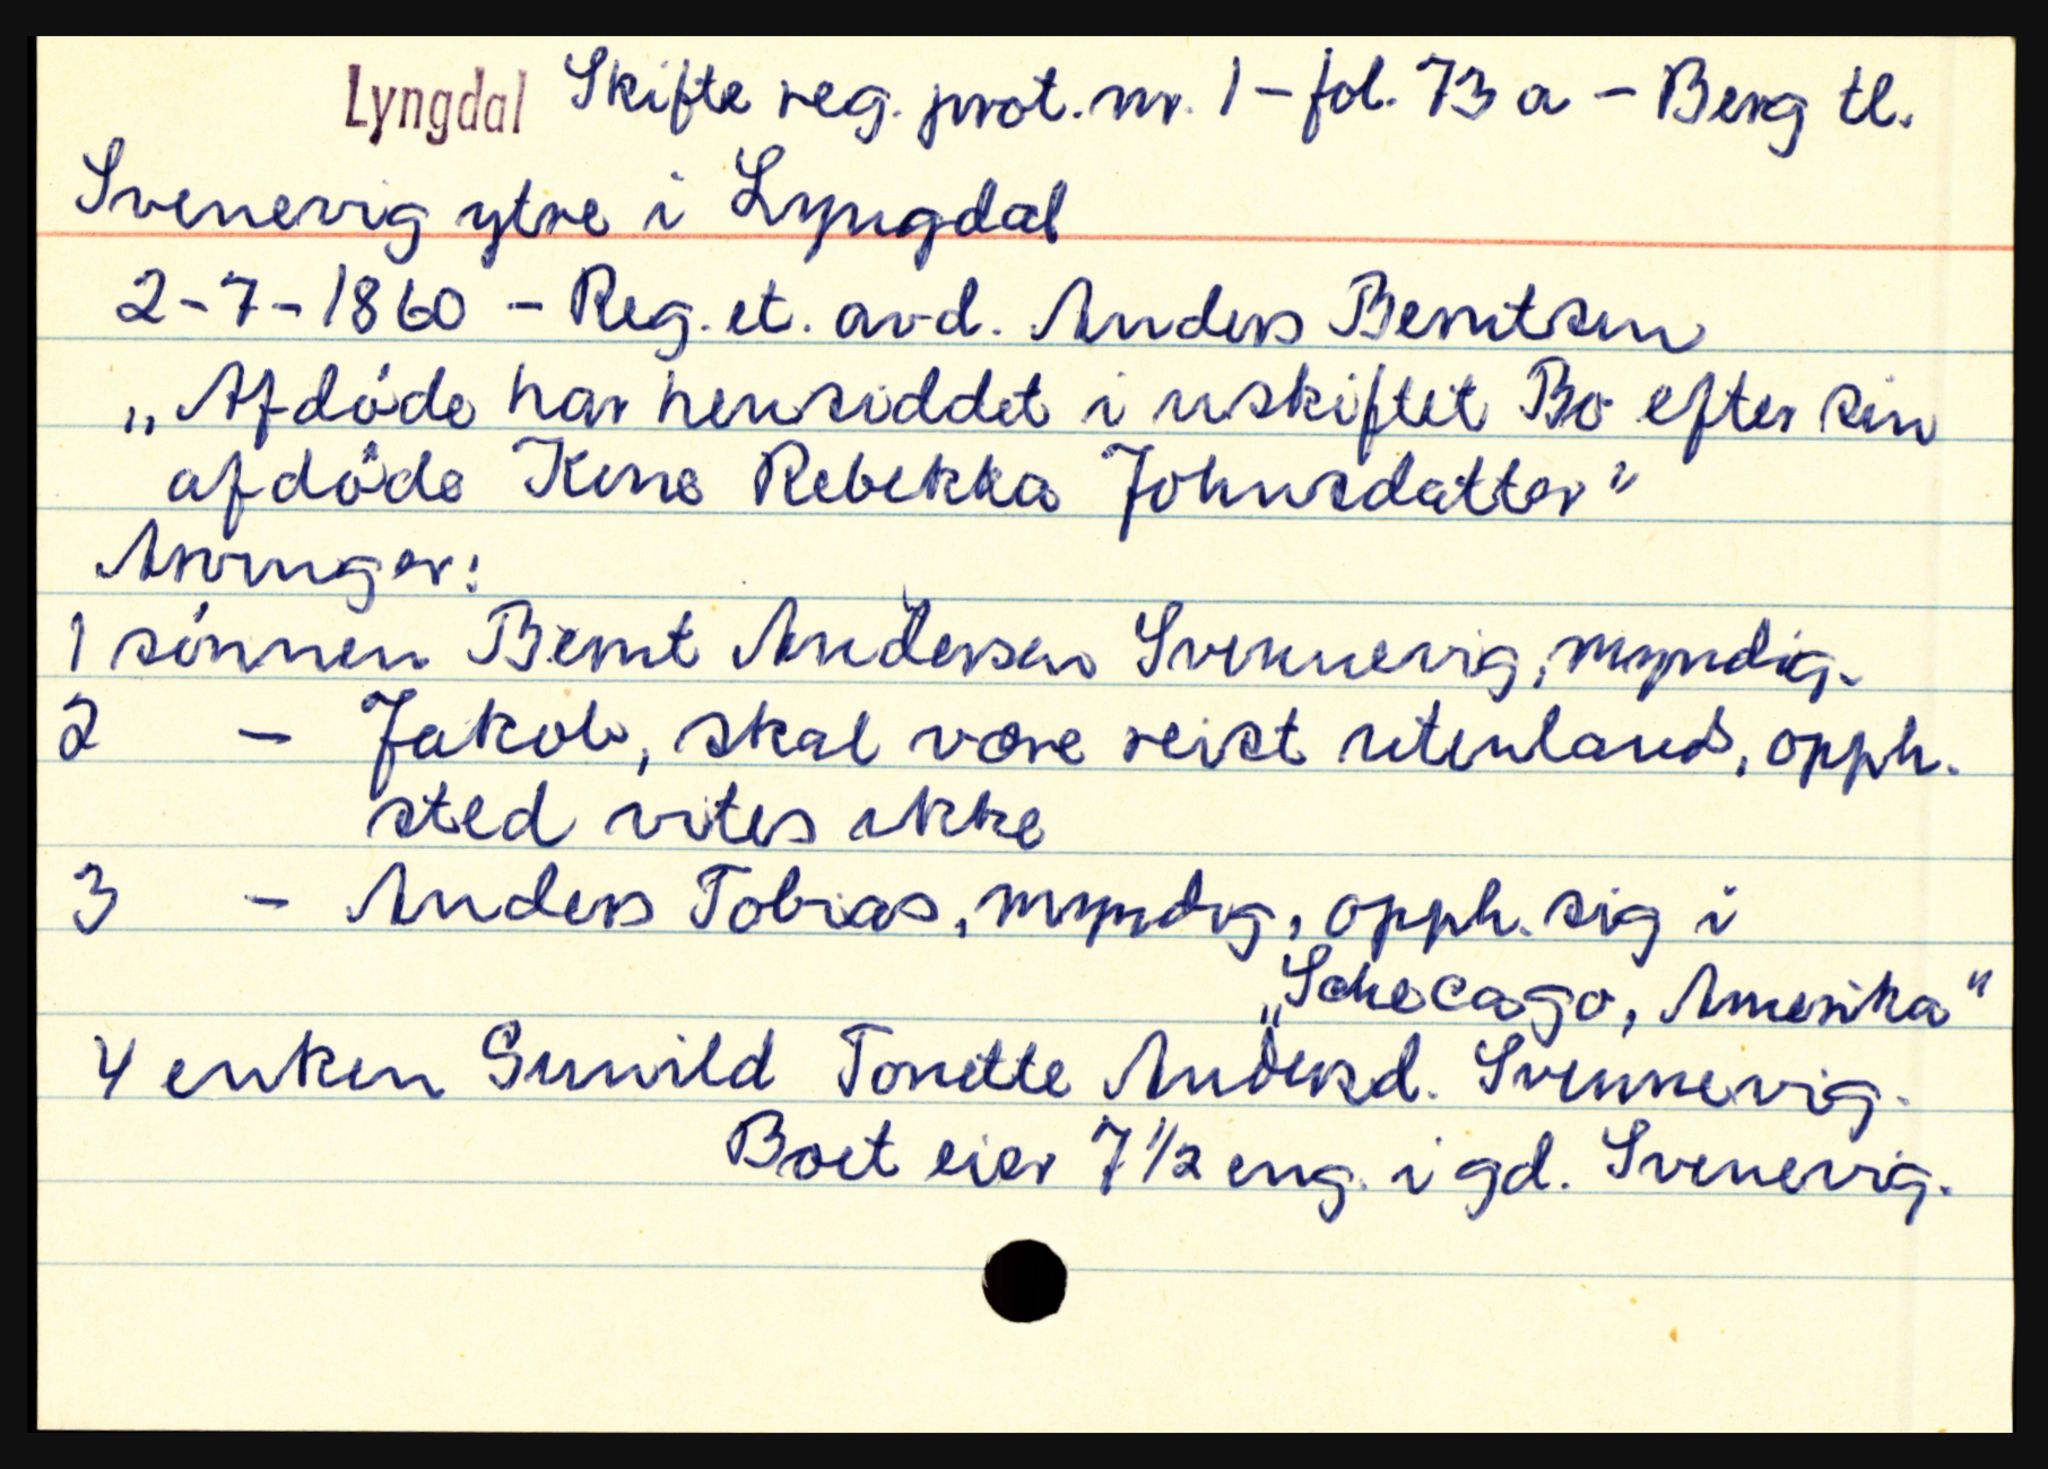 Lyngdal Skifte reg. prot. nr. 1 - fol. 73 a - Berg tl.
Svenevig ytre i Lyngdal
2-7-1860 - Reg. et. avd. Anders Berntsen
„Afdöde har hensiddet i uskiftet Bo efter sin
afdöde Kone Rebekka Johnsdatter"
Arvinger:
1 sönnen Bernt Andersen Svennevig, myndig.
2 - Jakob, skal være reist utenlands, opph.
sted vites ikke
3 - Anders Tobias, myndig, opph. sig i
„Schecago, Amerika"
4 enken Gunvild Tonette Andersd. Svennevig.
Boet eier 7 1/2 eng. i gd. Svenevig.